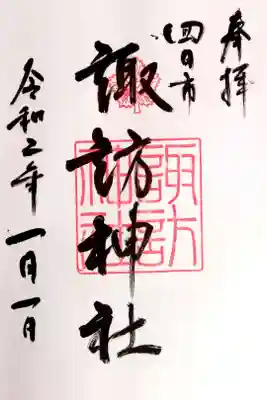 奉拝
四日市
諏訪神社
諏訪神社
令和二年一月一日